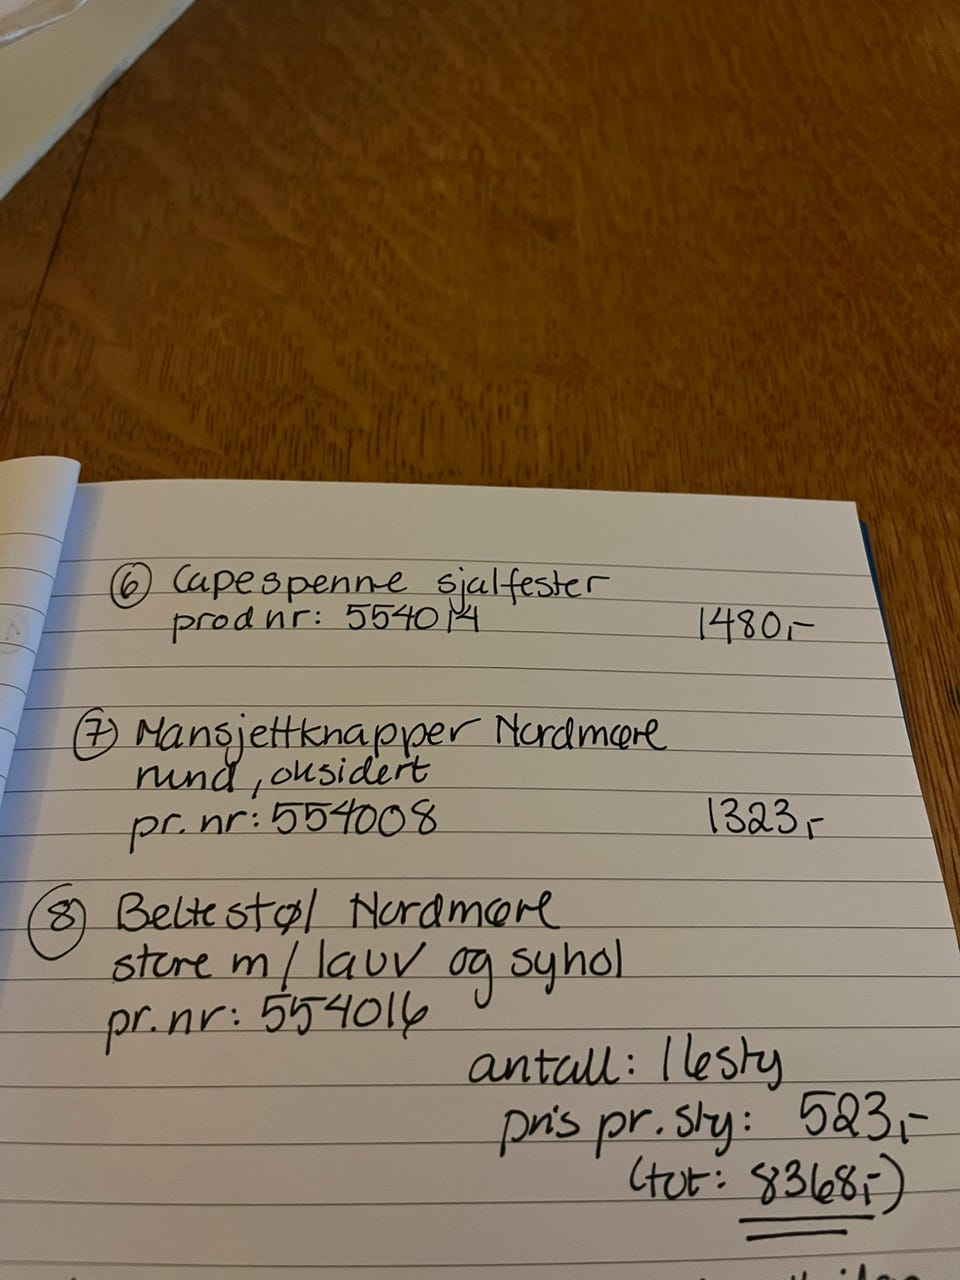 ⑥ Capespenne sjalfester
prod nr: 554014 1480,-
⑦ Mansjettknapper Nordmøre
rund, oksidert
pr. nr: 554008 1323,-
⑧ Beltestøl Nordmøre
store m/ lauv og syhol
pr. nr: 554016
antall: 16 sty
pris pr. sty: 523,-
(tot: 8368,-)